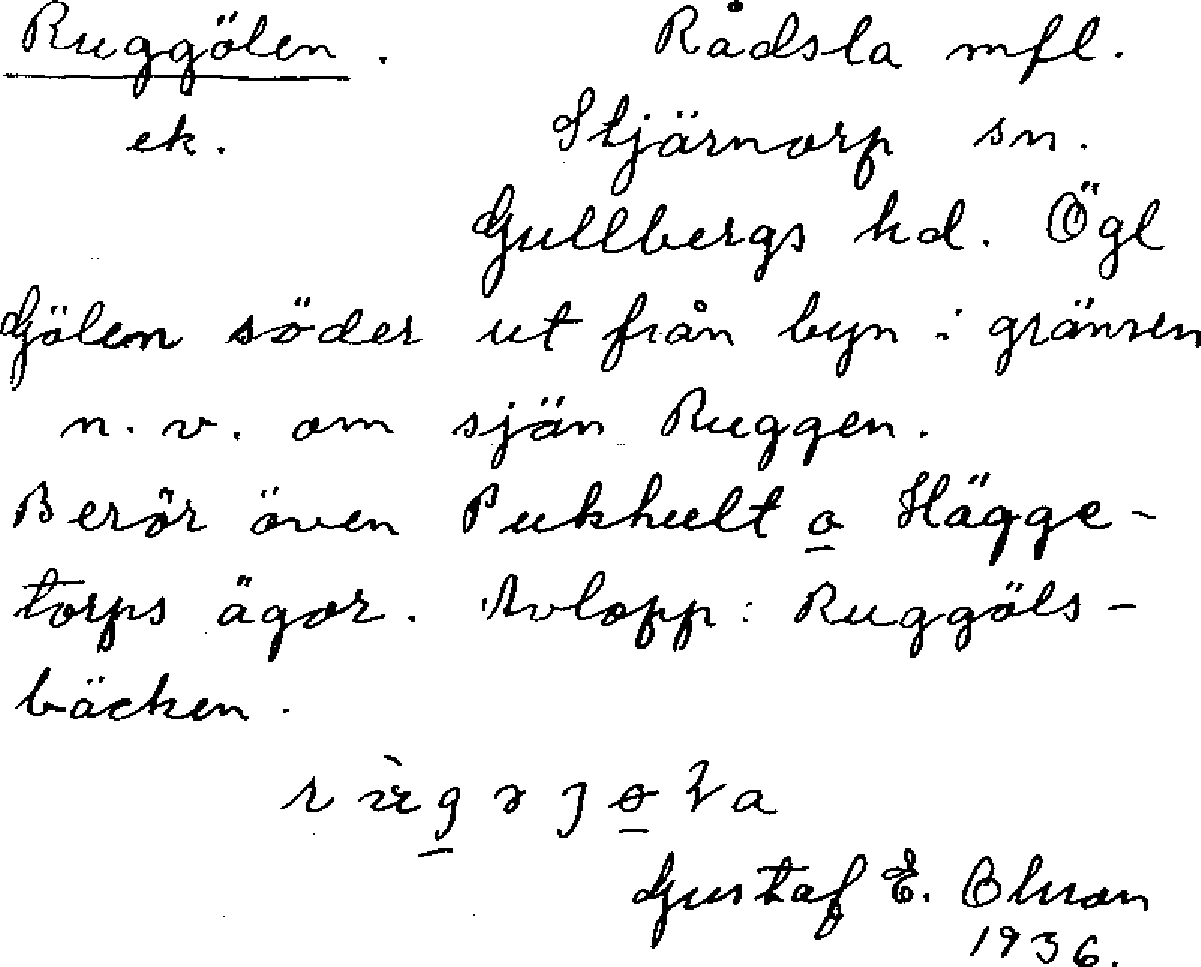 Ruggölen. Rådsla mfl.
ek. Stjärnorp sn.
Gullbergs hd. Ögl
Gölen söder ut från byn i gränsen
n.v. om sjön Ruggen.
Berör även Pukhult o Hägge-
torps ägor. Avlopp: Ruggöls-
bäcken.
Gustaf E. Olsson
1936.